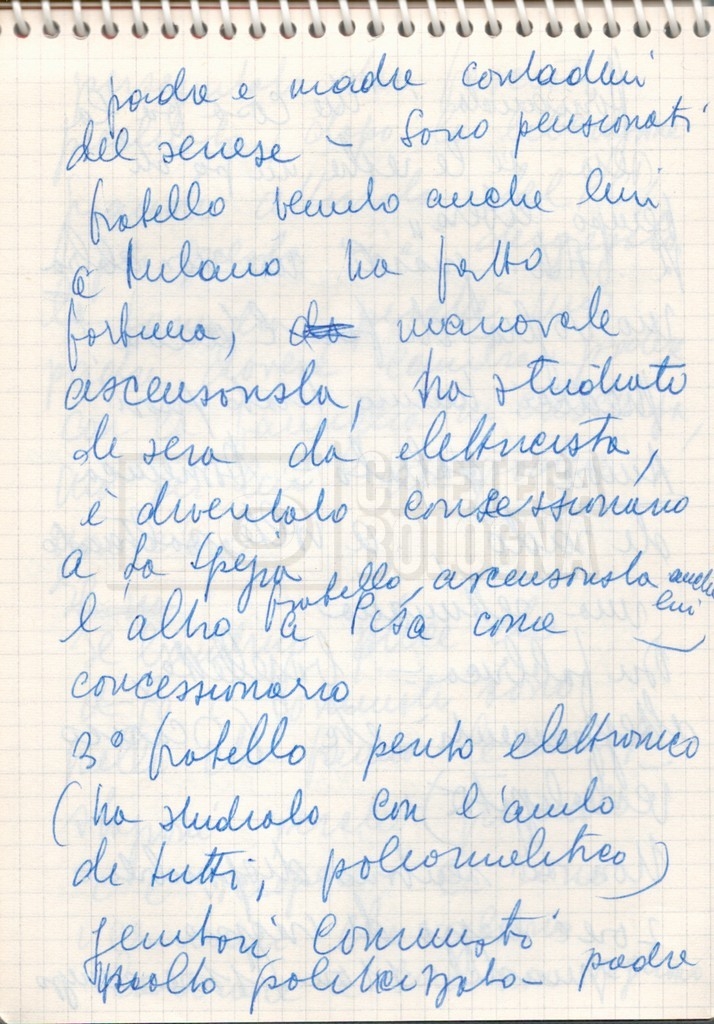 padre e madre contadini
del senese - Sono pensionati
fratello venuto anche lui
a Milano ha fatto
fortuna, manovale
ascensorista, ha studiato
di sera da elettricista,
è diventato concessionario
a La Spezia
fratello, ascensorista anche lui
l'altro a Pisa come
concessionario
3° fratello perito elettronico
(ha studiato con l'aiuto
di tutti, poliomielitico)
genitori comunisti
molto politicizzato - padre
CINETECA
BOLOGNA